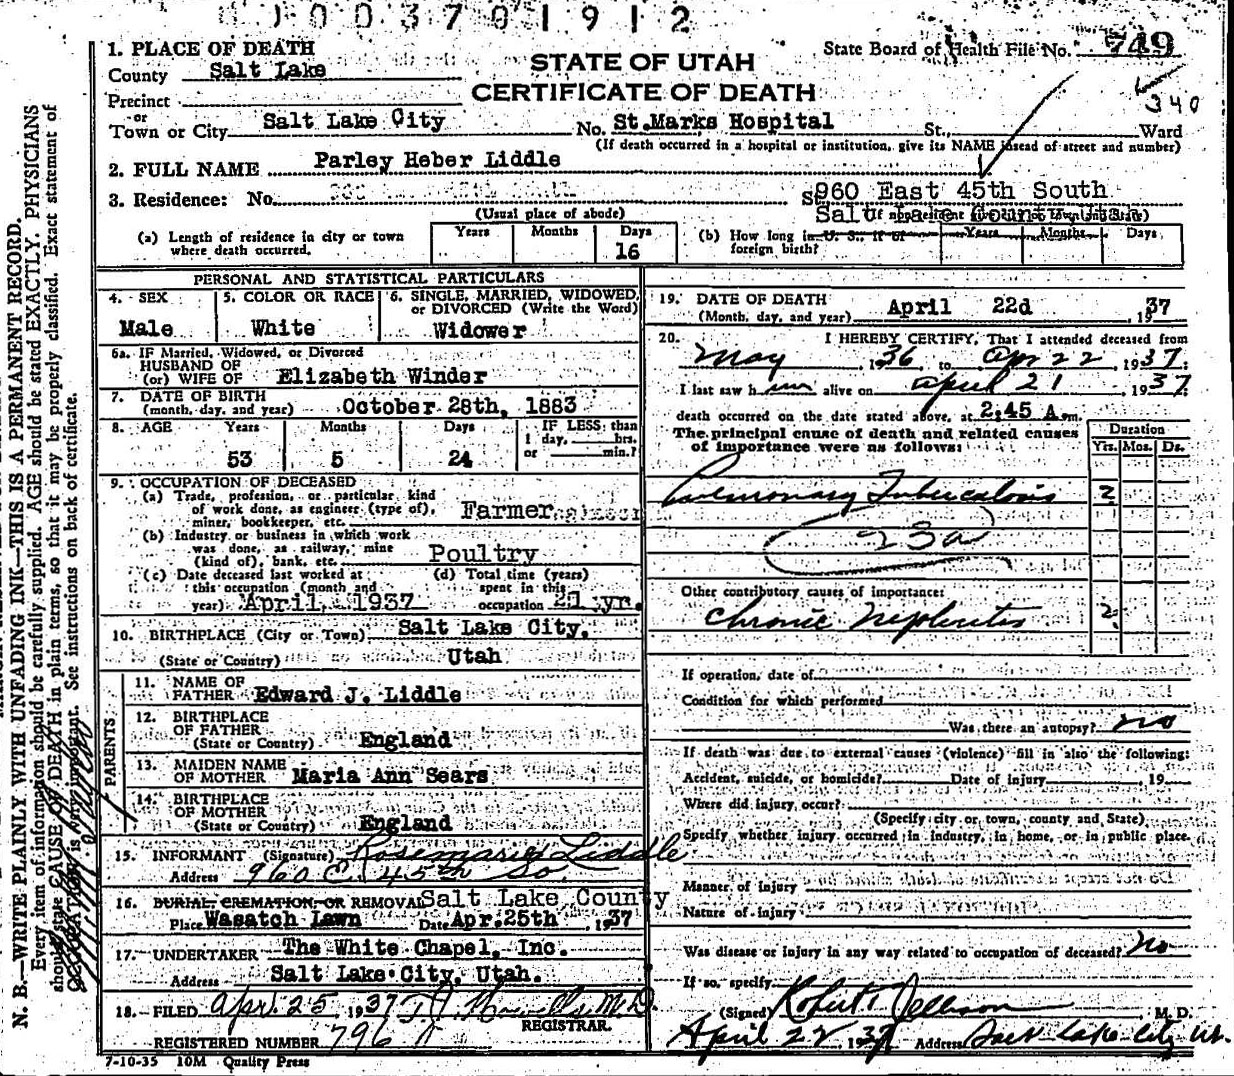 003701912
1. PLACE OF DEATH
County Salt Lake
STATE OF UTAH
CERTIFICATE OF DEATH
State Board of Health File No. 749
340
Precinct
or
Town or City Salt Lake City No. St.Marks Hospital St., Ward
(If death occurred in a hospital or institution, give its NAME instead of street and number)
2. FULL NAME Parley Heber Liddle
3. Residence: No. St. 960 East 45th South
(Usual place of abode)
Salt Lake County, Utah
(a) Length of residence in city or town where death occurred. Years Months Days 16
(b) How long in U. S., if of foreign birth? Years Months Days
PERSONAL AND STATISTICAL PARTICULARS
4. SEX Male
5. COLOR OR RACE White
6. SINGLE, MARRIED, WIDOWED, or DIVORCED (Write the Word) Widower
6a. IF Married, Widowed, or Divorced
HUSBAND OF
(or) WIFE OF Elizabeth Winder
7. DATE OF BIRTH
(month, day, and year) October 28th, 1883
8. AGE Years 53 Months 5 Days 24 IF LESS than 1 day, hrs. or min.?
9. OCCUPATION OF DECEASED
(a) Trade, profession, or particular kind
of work done, as engineer (type of),
miner, bookkeeper, etc. Farmer
(b) Industry or business in which work
was done, as railway, mine
(kind of), bank, etc. Poultry
(c) Date deceased last worked at
this occupation (month and
year) April, 1937
(d) Total time (years)
spent in this
occupation 21 yr.
10. BIRTHPLACE (City or Town) Salt Lake City,
(State or Country) Utah
PARENTS
11. NAME OF
FATHER Edward J. Liddle
12. BIRTHPLACE
OF FATHER
(State or Country) England
13. MAIDEN NAME
OF MOTHER Maria Ann Sears
14. BIRTHPLACE
OF MOTHER
(State or Country) England
15. INFORMANT (Signature) Rosemarie Liddle
Address 960 E. 45th So.
16. BURIAL, CREMATION OR REMOVAL Salt Lake County
Place Wasatch Lawn Date Apr.25th, 1937
17. UNDERTAKER The White Chapel, Inc.
Address Salt Lake City, Utah.
18. FILED Apr. 25 1937 M.D.
REGISTRAR.
REGISTERED NUMBER 796
7-10-35 10M Quality Press
19. DATE OF DEATH
(Month, day, and year) April 22d 1937
20. I HEREBY CERTIFY, That I attended deceased from
May 1936 to Apr 22 1937
I last saw him alive on April 21 1937
death occurred on the date stated above, at 2:45 A.m.
The principal cause of death and related causes
of importance were as follows:
Duration
Yrs. Mos. Ds.
Pulmonary Tuberculosis 2
23a
Other contributory causes of importance:
Chronic Nephritis 2
If operation, date of
Condition for which performed
Was there an autopsy? no
If death was due to external causes (violence) fill in also the following:
Accident, suicide, or homicide? Date of injury 19
Where did injury occur?
(Specify city or town, county and State)
Specify whether injury occurred in industry, in home, or in public place.
Manner of injury
Nature of injury
Was disease or injury in any way related to occupation of deceased? No
If so, specify
(Signed) Robert Jellison M. D.
April 22 1937 Address Salt Lake City Ut.
N. B.—WRITE PLAINLY WITH UNFADING INK—THIS IS A PERMANENT RECORD.
Every item of information should be carefully supplied. AGE should be stated EXACTLY. PHYSICIANS
should state CAUSE OF DEATH in plain terms, so that it may be properly classified. Exact statement of
OCCUPATION is very important. See instructions on back of certificate.